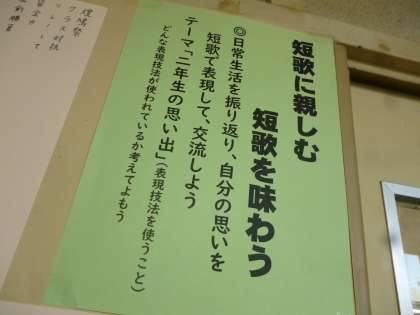 短歌に親しむ
短歌を味わう
◎日常生活を振り返り、自分の思いを
短歌で表現して、交流しよう
テーマ「二年生の思い出」(表現技法を使うこと)
どんな表現技法が使われているか考えてよもう
クラス対抗